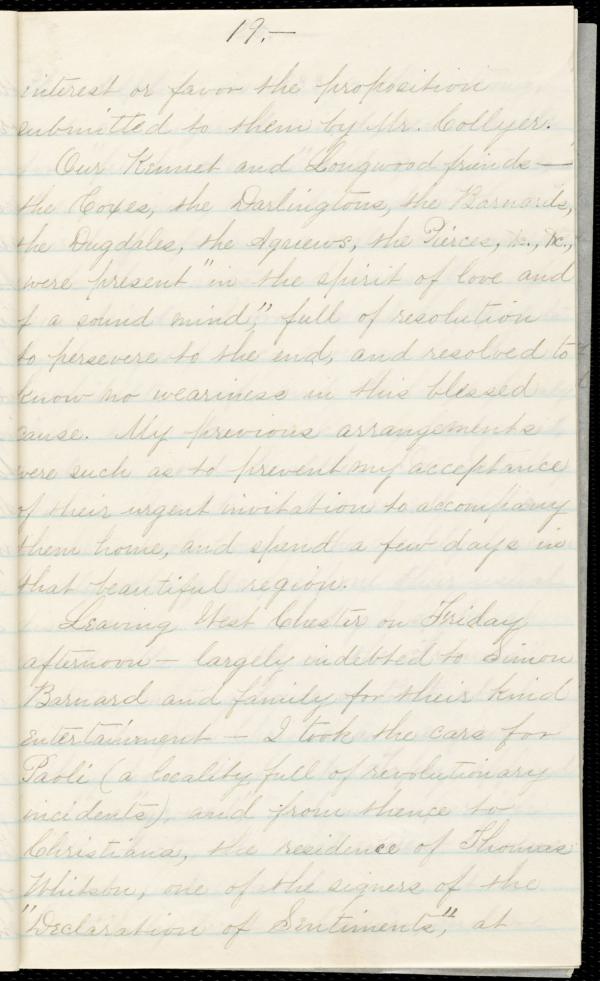 19.—
interest or favor the proposition
submitted to them by Mr. Collyer.
Our Kennet and Longwood friends—
the Coxes, the Darlingtons, the Barnards,
the Dugdales, the Agnews, the Pierces, &c., &c.,
were present "in the spirit of love and
of a sound mind," full of resolution
to persevere to the end, and resolved to
know no weariness in this blessed
cause. My previous arrangements
were such as to prevent my acceptance
of their urgent invitation to accompany
them home, and spend a few days in
that beautiful region.
Leaving West Chester on Friday
afternoon — largely indebted to Simon
Barnard and family for their kind
entertainment — I took the cars for
Paoli (a locality full of revolutionary
incidents), and from thence to
Christiana, the residence of Thomas
Whitson, one of the signers of the
"Declaration of Sentiments," at